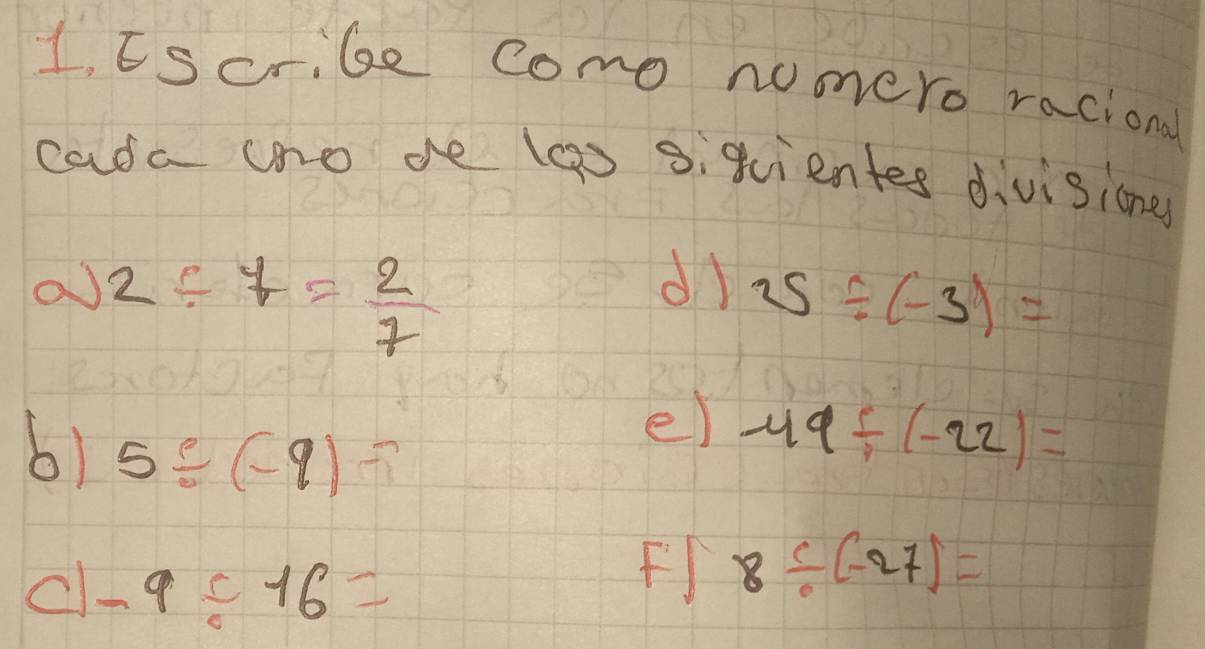 1. Escribe como numero racional
cada uno de las siguientes divisiones
a) 2 ÷ 7 = 2/7
d) 25 ÷ (-3) =
b) 5 ÷ (-9) =
e) -49 ÷ (-22) =
c) -9 ÷ 16 =
F) 8 ÷ (-27) =